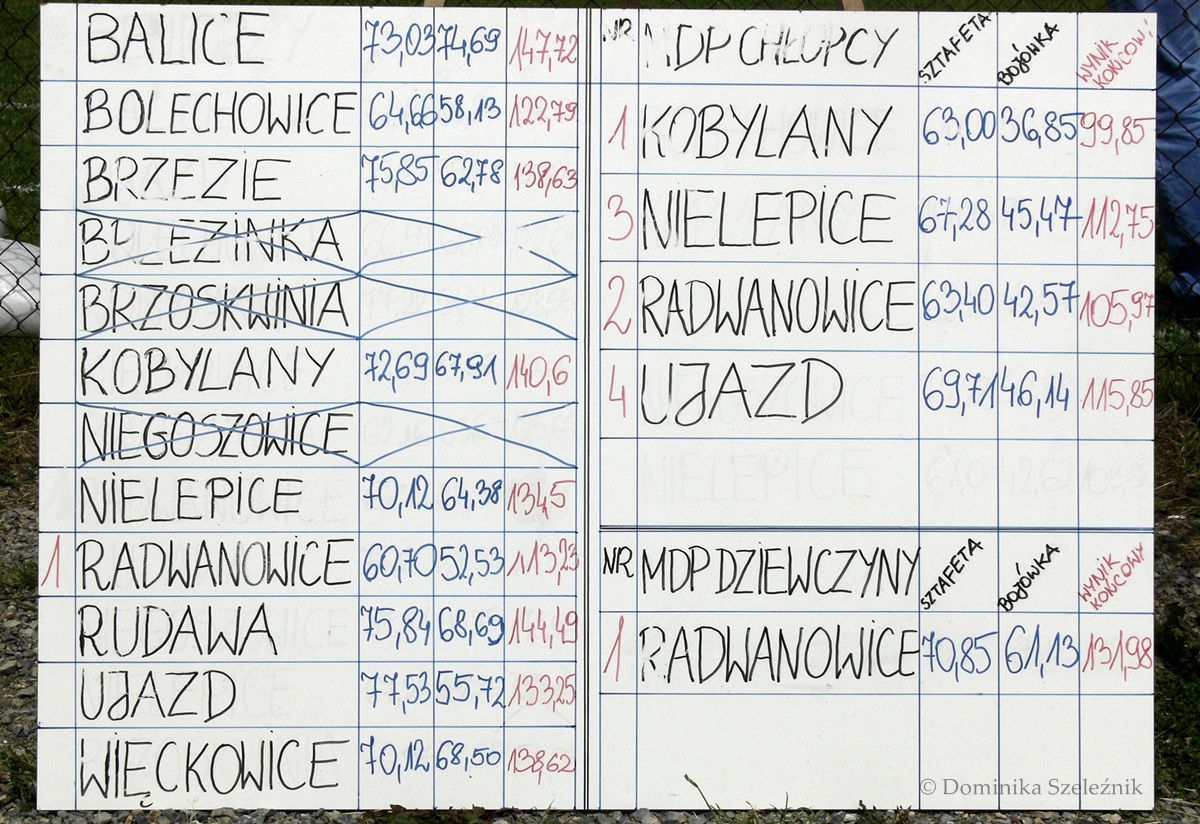 BALICE 73,03 74,69 147,72
BOLECHOWICE 64,66 58,13 122,79
BRZEZIE 75,85 62,78 138,63
BRZEZINKA
BRZOSKWINIA
KOBYLANY 72,69 67,91 140,6
NIEGOSZOWICE
NIELEPICE 70,12 64,38 134,5
1 RADWANOWICE 60,70 52,53 113,23
RUDAWA 75,84 68,69 144,49
UJAZD 77,53 55,72 133,25
WIĘCKOWICE 70,12 68,50 138,62
NR MDP CHŁOPCY SZTAFETA BOJÓWKA WYNIK KOŃCOWY
1 KOBYLANY 63,00 36,85 99,85
3 NIELEPICE 67,28 45,47 112,75
2 RADWANOWICE 63,40 42,57 105,97
4 UJAZD 69,71 46,14 115,85
NIELEPICE
NR MDP DZIEWCZYNY SZTAFETA BOJÓWKA WYNIK KOŃCOWY
1 RADWANOWICE 70,85 61,13 131,98
© Dominika Szeleźnik